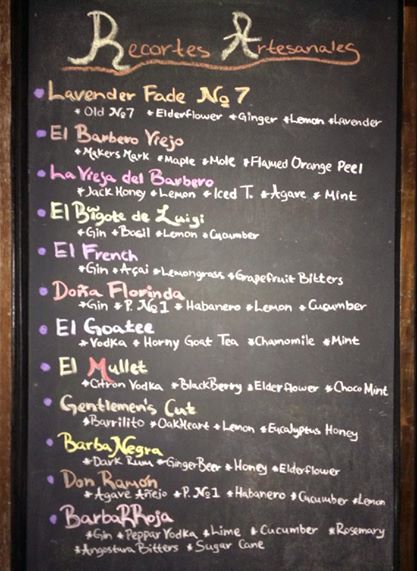 Recortes Artesanales
Lavender Fade No 7
* Old No7 * Elderflower * Ginger * Lemon * Lavender
El Barbero Viejo
* Makers Mark * Maple * Mole * Flamed Orange Peel
La Vieja del Barbero
* Jack Honey * Lemon * Iced T. * Agave * Mint
El Bigote de Luigi
* Gin * Basil * Lemon * Cucumber
El French
* Gin * Açai * Lemongrass * Grapefruit Bitters
Doña Florinda
* Gin * P. No1 * Habanero * Lemon * Cucumber
El Goatee
* Vodka * Horny Goat Tea * Chamomile * Mint
El Mullet
* Citron Vodka * BlackBerry * Elderflower * Choco Mint
Gentlemen's Cut
* Barrilito * OakHeart * Lemon * Eucalyptus Honey
Barba Negra
* Dark Rum * Ginger Beer * Honey * Elderflower
Don Ramón
* Agave Añejo * P. No1 * Habanero * Cucumber * Lemon
BarbaRRoja
* Gin * Peppar Vodka * Lime * Cucumber * Rosemary
* Angostura Bitters * Sugar Cane